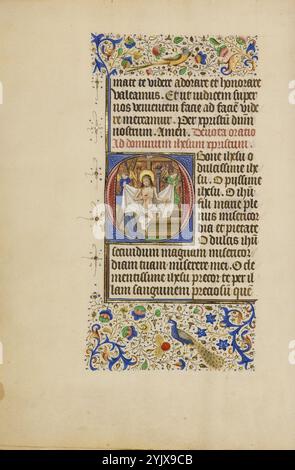 mate te videre adorare et honorare
valeamus. Et ut iudicem super
nos venientem facie ad faciē vide
re mereamur. Per xpristum dnm̄
nostrum. Amen. Devota oratio
Ad dominum ihesum xpristum.
O Bone ihesu o
dulcissime ihe
su. O piissime
ihesu. O ihū
fili marie ple
nus misericor
dia et pietate
O dulcis ihū
secundum magnam misericor
diam tuam miserere mei. O cle
mentissime ihesu precor te per il
lum sanguinem preciosū que
alamy
Image ID: 2YJX9CB
www.alamy.com